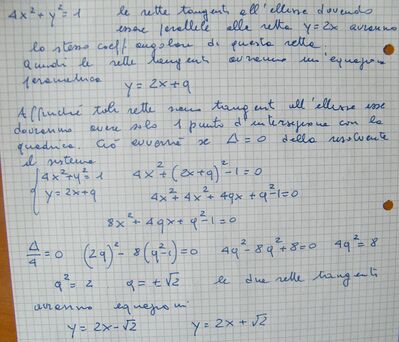 4x² + y² = 1 le rette tangenti all'ellisse dovendo
essere parallele alla retta y = 2x avranno
lo stesso coeff angolare di questa retta.
Quindi le rette tangenti avranno un'equazione
parametrica y = 2x + q
Affinché tali rette siano tangenti all'ellisse esse
dovranno avere solo 1 punto d'intersezione con la
quadrica. Ciò avverrà se Δ = 0 della risolvente
il sistema
{ 4x² + y² = 1 4x² + (2x + q)² - 1 = 0
y = 2x + q 4x² + 4x² + 4qx + q² - 1 = 0
8x² + 4qx + q² - 1 = 0
Δ/4 = 0 (2q)² - 8(q² - 1) = 0 4q² - 8q² + 8 = 0 4q² = 8
q² = 2 q = ±√2 le due rette tangenti
avranno equazioni
y = 2x - √2 y = 2x + √2